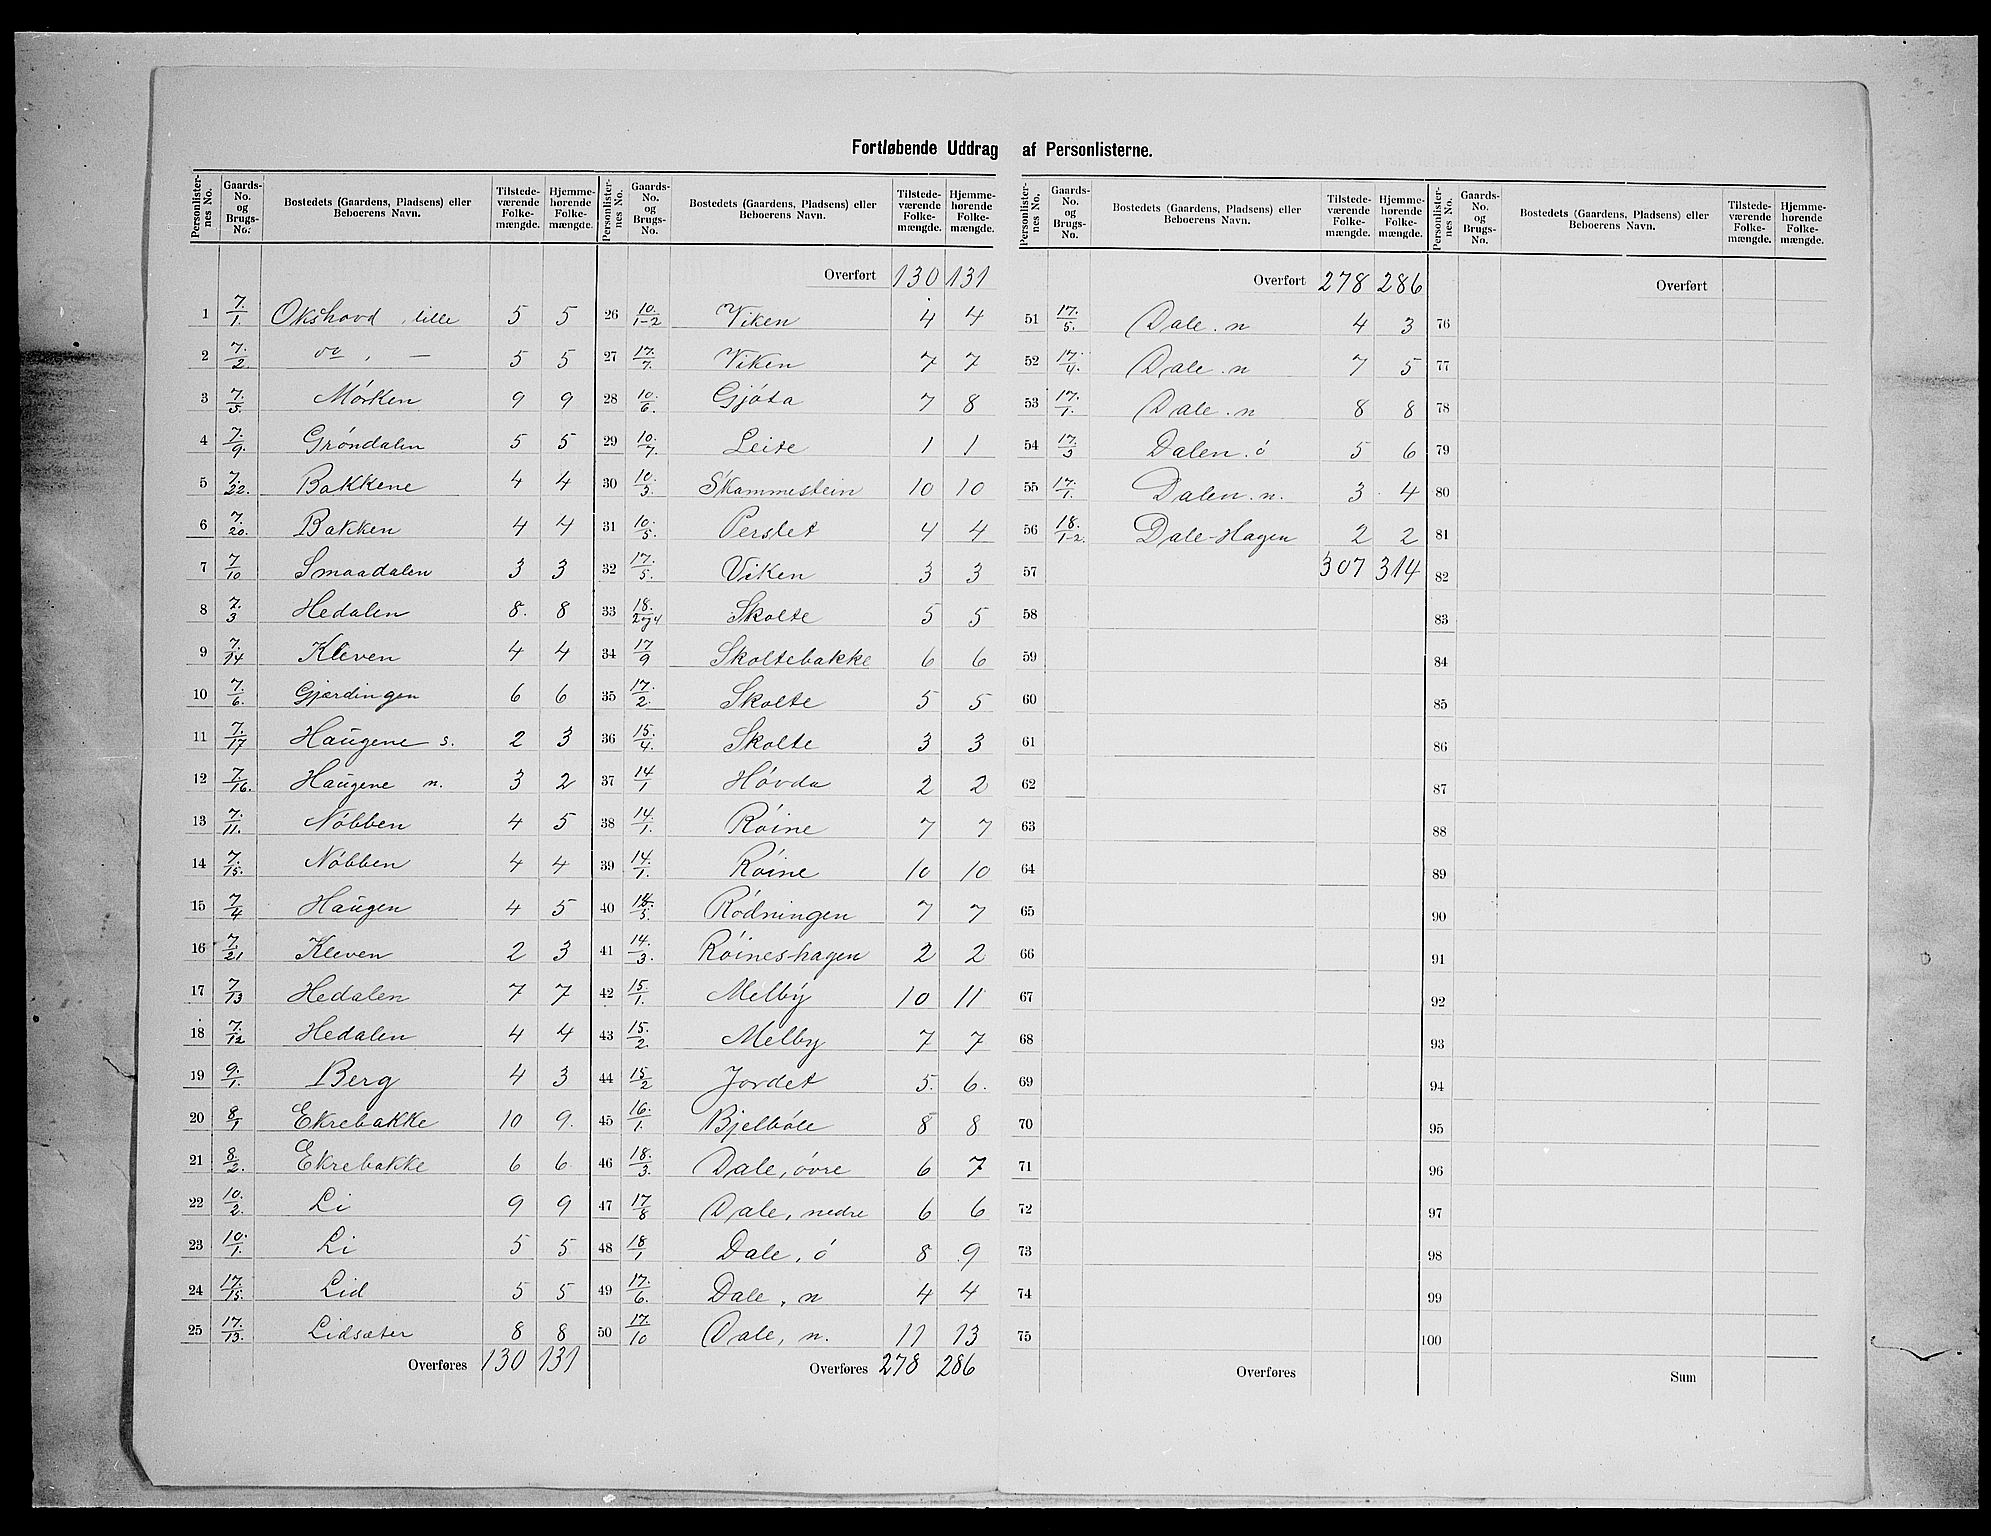 Fortløbende Uddrag af Personlisterne.
Personlisternes No. | Gaards-No. og Brugs-No. | Bostedets (Gaardens, Pladsens) eller Beboerens Navn. | Tilstedeværende Folkemængde. | Hjemmehørende Folkemængde.
1 | 7./1. | Okshovd, lille | 5 | 5
2 | 7./2. | do, — | 5 | 5
3 | 7./5. | Mørken | 9 | 9
4 | 7./9. | Gröndalen | 5 | 5
5 | 7./22. | Bakkene | 4 | 4
6 | 7./20. | Bakken | 4 | 4
7 | 7/10 | Smaadalen | 3 | 3
8 | 7./3 | Hedalen | 8. | 8
9 | 7./14 | Kleven | 4 | 4
10 | 7./6. | Gjærdingen | 6 | 6
11 | 7./17 | Haugene s. | 2 | 3
12 | 7./16. | Haugene n. | 3 | 2
13 | 7./11. | Nöbben | 4 | 5
14 | 7./15. | Nöbben | 4 | 4
15 | 7./4 | Haugen | 4 | 5
16 | 7./21 | Kleven | 2 | 3
17 | 7/13 | Hedalen | 7 | 7
18 | 7./12 | Hedalen | 4 | 4
19 | 9./1. | Berg | 4 | 3
20 | 8./1 | Ekrebakke | 10 | 9.
21 | 8./2. | Ekrebakke | 6 | 6
22 | 10./2. | Li | 9 | 9
23 | 10./1. | Li | 5 | 5
24 | 17./15. | Lid | 5 | 5
25 | 17./13. | Lidsæter | 8 | 8
Overføres 130 131
Personlisternes No. | Gaards-No. og Brugs-No. | Bostedets (Gaardens, Pladsens) eller Beboerens Navn. | Tilstedeværende Folkemængde. | Hjemmehørende Folkemængde.
Overført 130 131
26 | 10./1-2 | Viken | 4 | 4
27 | 17./7. | Viken | 7 | 7
28 | 10./6. | Gjöta | 7 | 8
29 | 10./7. | Leite | 1 | 1
30 | 10./3. | Skammestein | 10 | 10
31 | 10./5. | Perslet | 4 | 4
32 | 17./5. | Viken | 3 | 3
33 | 18./2og4 | Skolte | 5 | 5
34 | 17/9 | Skoltebakke | 6 | 6
35 | 17./2. | Skolte | 5 | 5
36 | 15./4. | Skolte | 3 | 3
37 | 14/1 | Hövda | 2 | 2
38 | 14./1. | Röine | 7 | 7
39 | 14./1. | Röine | 10 | 10
40 | /5. | Rödningen | 7 | 7
41 | 14./3. | Röineshagen | 2 | 2
42 | 15./1. | Melby | 10 | 11
43 | 15./2. | Melby | 7 | 7
44 | 15/2 | Jordet | 5. | 6.
45 | 16./1. | Bjelböle | 8 | 8
46 | 18./3. | Dale, övre | 6 | 7
47 | 17/8 | Dale, nedre | 6 | 6
48 | 18/1 | Dale, ö | 8 | 9
49 | 17./6. | Dale, n | 4 | 4
50 | 17./10 | Dale, n. | 11 | 13
Overføres 278 286
Personlisternes No. | Gaards-No. og Brugs-No. | Bostedets (Gaardens, Pladsens) eller Beboerens Navn. | Tilstedeværende Folkemængde. | Hjemmehørende Folkemængde.
Overført 278 286
51 | 17./5. | Dale. n | 4 | 3
52 | 17./4. | Dale. n | 7 | 5
53 | 17./1. | Dale. n | 8 | 8
54 | 17./3 | Dalen. ö | 5 | 6
55 | 17./1. | Dalen. n. | 3 | 4
56 | 18./1-2. | Dale-Hagen | 2 | 2
57 307 314
58
59
60
61
62
63
64
65
66
67
68
69
70
71
72
73
74
75
Overføres
Personlisternes No. | Gaards-No. og Brugs-No. | Bostedets (Gaardens, Pladsens) eller Beboerens Navn. | Tilstedeværende Folkemængde. | Hjemmehørende Folkemængde.
Overført
76
77
78
79
80
81
82
83
84
85
86
87
88
89
90
91
92
93
94
95
96
97
98
99
100
Sum